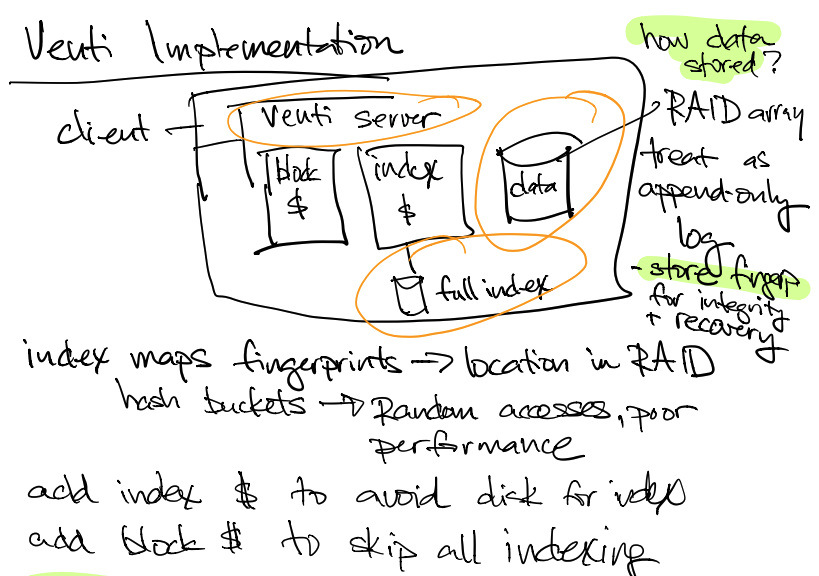 Venti Implementation
how data
stored?
client
Venti server
RAID array
block
$
index
$
data
treat as
append-only
log
full index
- store fingerp
for integrity
+ recovery
index maps fingerprints → location in RAID
hash buckets → Random accesses, poor
performance
add index $ to avoid disk for index
add block $ to skip all indexing